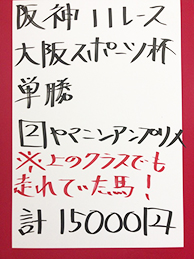 阪神11レース
大阪スポーツ杯
単勝
2ヤマニンアンプリメ
※上のクラスでも
走れていた馬!
計15000円